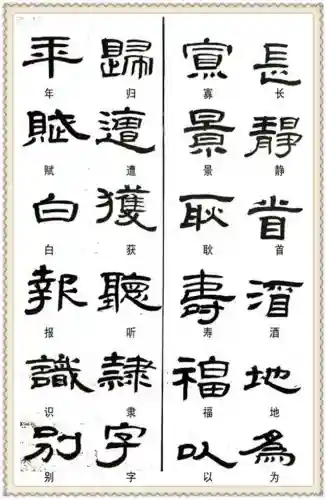 長长靜静首首酒酒地地為为
寡寡景景耿耿壽寿福福以以
歸归遭遭獲获聽听隸隶字字
年年賦赋白白報报識识別别